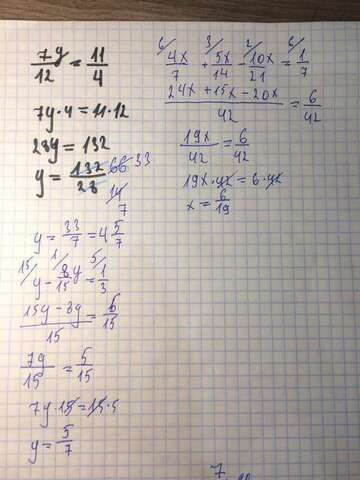 7y/12 = 11/4
7y·4 = 11·12
28y = 132
y = 132/28 66 33
14
7
y = 33/7 = 4 5/7
15/ y - 1/ 8/15 y = 5/ 1/3
15y - 8y/15 = 5/15
7y/15 = 5/15
7y·15 = 15·5
y = 5/7
6/ 4x/7 + 3/ 5x/14 - 2/ 10x/21 = 6/ 1/7
24x + 15x - 20x/42 = 6/42
19x/42 = 6/42
19x·42 = 6·42
x = 6/19
7